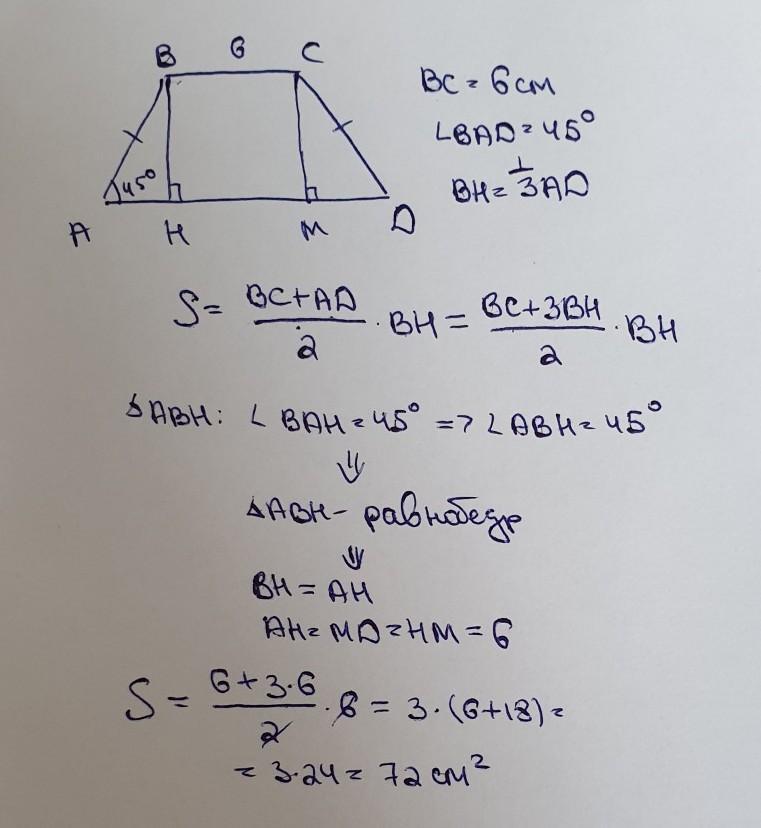 B 6 C
BC = 6 см
∠BAD = 45°
BH = 1/3 AD
45°
A H M D
S = (BC + AD)/2 · BH = (BC + 3BH)/2 · BH
△ABH: ∠BAH = 45° => ∠ABH = 45°
⇓
△ABH – равнобедр
⇓
BH = AH
AH = MD = HM = 6
S = (6 + 3·6)/2 · 6 = 3 · (6 + 18) =
= 3·24 = 72 см²